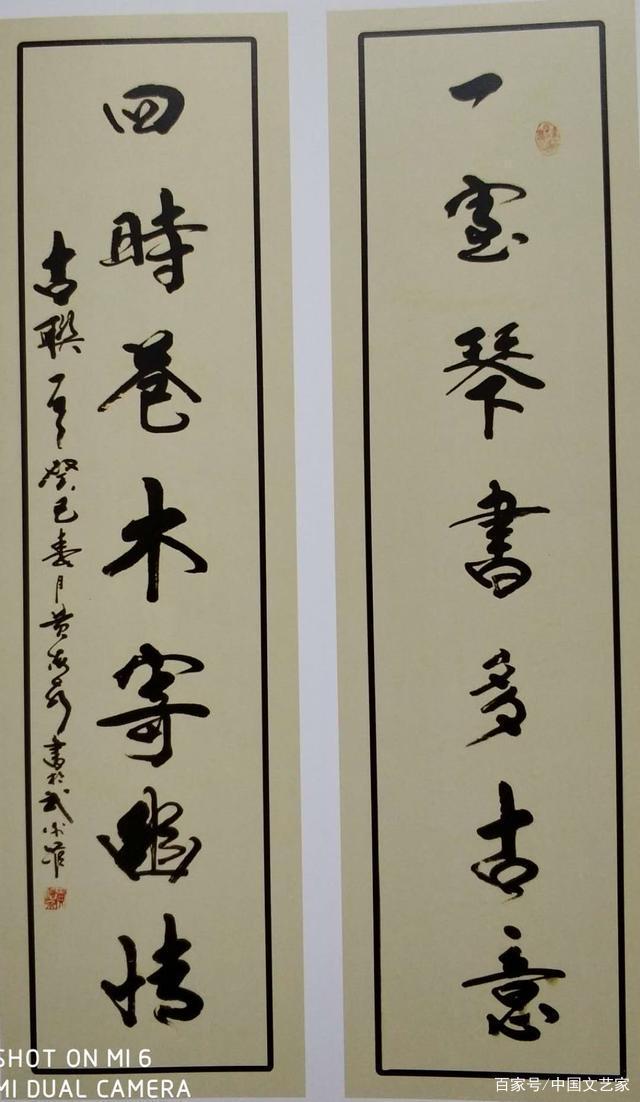 一室琴書多古意
四時木寄幽情
古聯一癸巳春月黃書於武
SHOT ON MI 6
MI DUAL CAMERA
百家号/中国文艺家